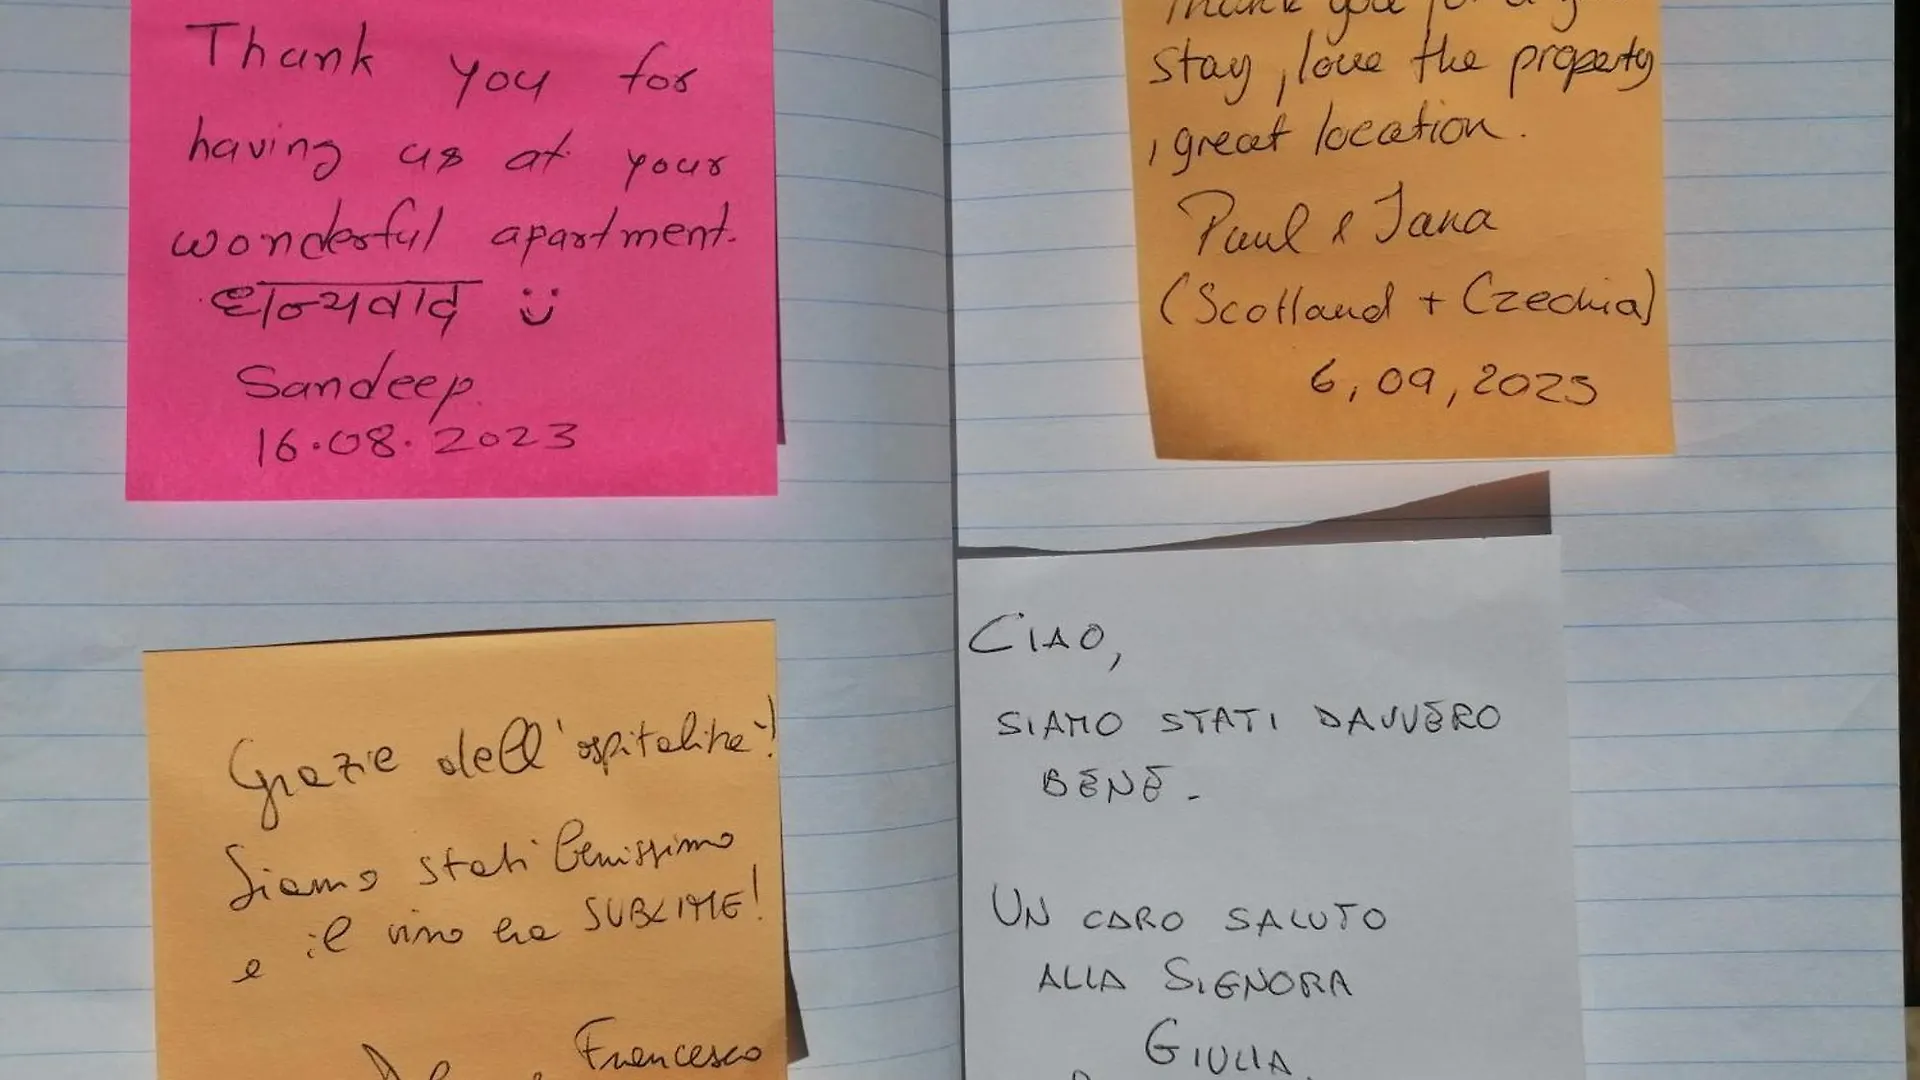 Thank you for
having us at your
wonderful apartment.
धन्यवाद
Sandeep.
16.08.2023
Thank you for a
stay, love the property
, great location.
Paul & Jana
(Scotland + Czechia)
6, 09, 2025
Grazie dell'ospitalità!
Siamo stati benissimo
e il vino era SUBLIME!
Francesco
CIAO,
SIAMO STATI DAVVERO
BENE.
UN CARO SALUTO
ALLA SIGNORA
GIULIA.